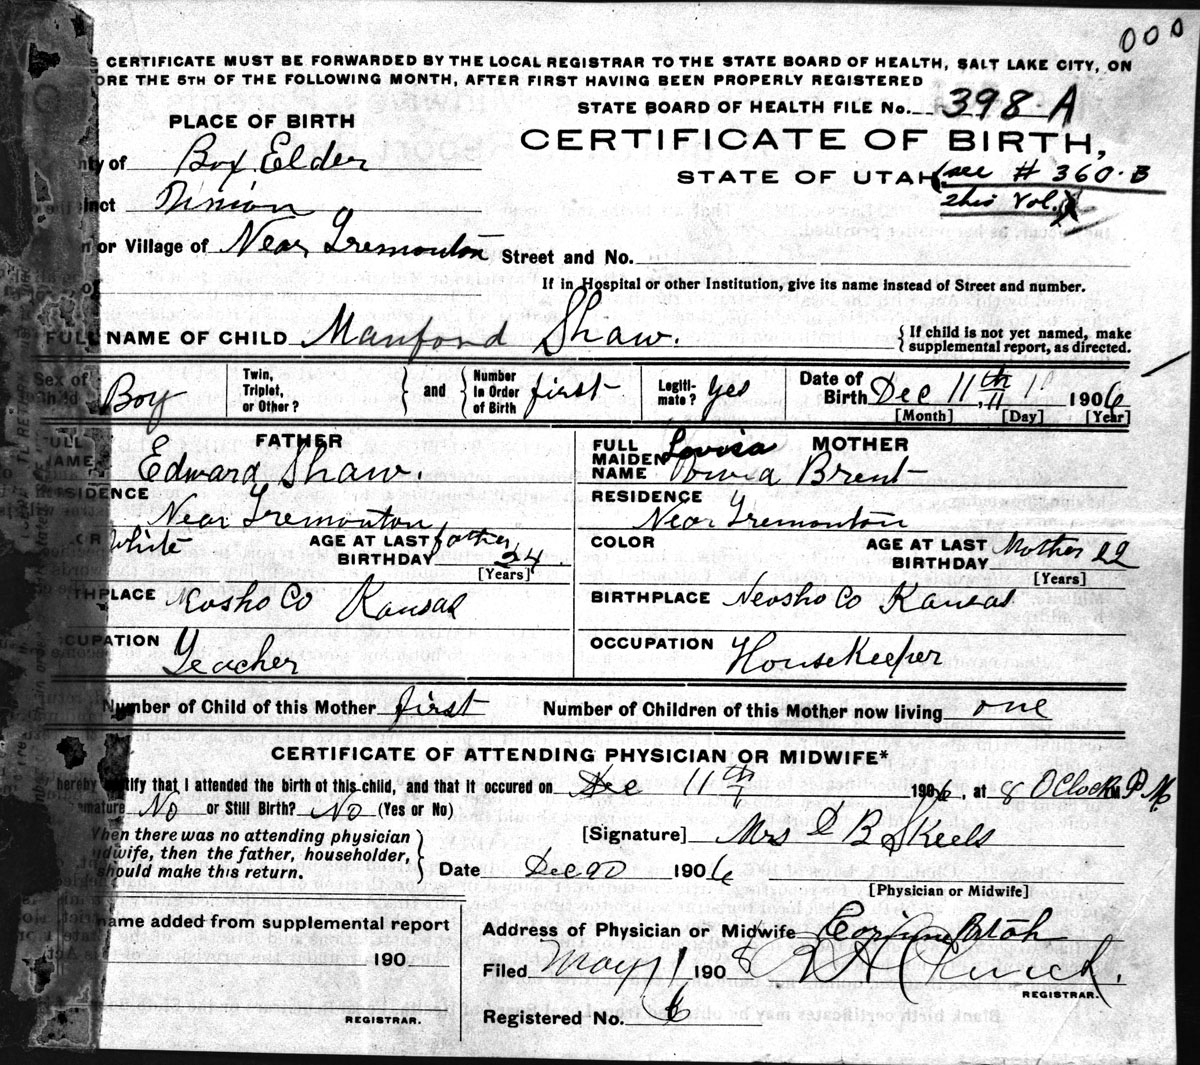 000
S CERTIFICATE MUST BE FORWARDED BY THE LOCAL REGISTRAR TO THE STATE BOARD OF HEALTH, SALT LAKE CITY, ON
ORE THE 5TH OF THE FOLLOWING MONTH, AFTER FIRST HAVING BEEN PROPERLY REGISTERED
STATE BOARD OF HEALTH FILE No. 398-A
PLACE OF BIRTH
CERTIFICATE OF BIRTH,
nty of Box Elder
STATE OF UTAH (see # 360-B
this Vol.)
inct
n or Village of Near Tremonton Street and No.
of
If in Hospital or other Institution, give its name instead of Street and number.
FULL NAME OF CHILD Manford Shaw. { If child is not yet named, make supplemental report, as directed.
Sex of Child Boy Twin, Triplet, or Other? } and { Number in Order of Birth first Legitimate? yes Date of Birth Dec 11th 1906
[Month] [Day] [Year]
FATHER
FULL NAME Edward Shaw.
RESIDENCE Near Tremonton
COLOR White AGE AT LAST BIRTHDAY father 24
[Years]
THPLACE Neosho Co Kansas
CUPATION Teacher
MOTHER
FULL MAIDEN NAME Lovica Brent
RESIDENCE Near Tremonton
COLOR AGE AT LAST BIRTHDAY Mother 22
[Years]
BIRTHPLACE Neosho Co Kansas
OCCUPATION Housekeeper
Number of Child of this Mother first Number of Children of this Mother now living one
CERTIFICATE OF ATTENDING PHYSICIAN OR MIDWIFE*
hereby certify that I attended the birth of this child, and that it occured on Dec 11th 1906, at 8 O'Clock P M.
mature No or Still Birth? No (Yes or No)
When there was no attending physician
dwife, then the father, householder,
should make this return.
[Signature] Mrs B Skeels
Date Dec 20 1906
[Physician or Midwife]
name added from supplemental report
190
REGISTRAR.
Address of Physician or Midwife Corinne Utah
Filed May 1 1908
REGISTRAR.
Registered No. 6